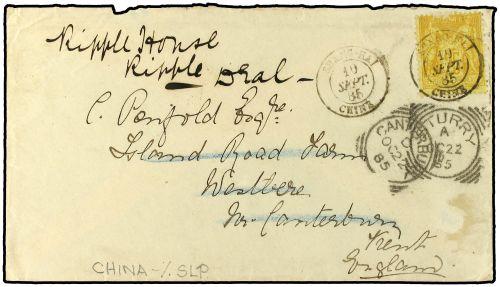 Ripple House
Ripple Deal -
C. Penfold Esqre.
Island Road Farm
Westbere
Nr. Canterbury
Kent
England
SHANG-HAI
19
SEPT.
85
CHINE
19
SEPT.
85
CHINE
CANTERBURY
OC 22
85
CANTERBURY
A
OC 22
85
CHINA -/. SLP